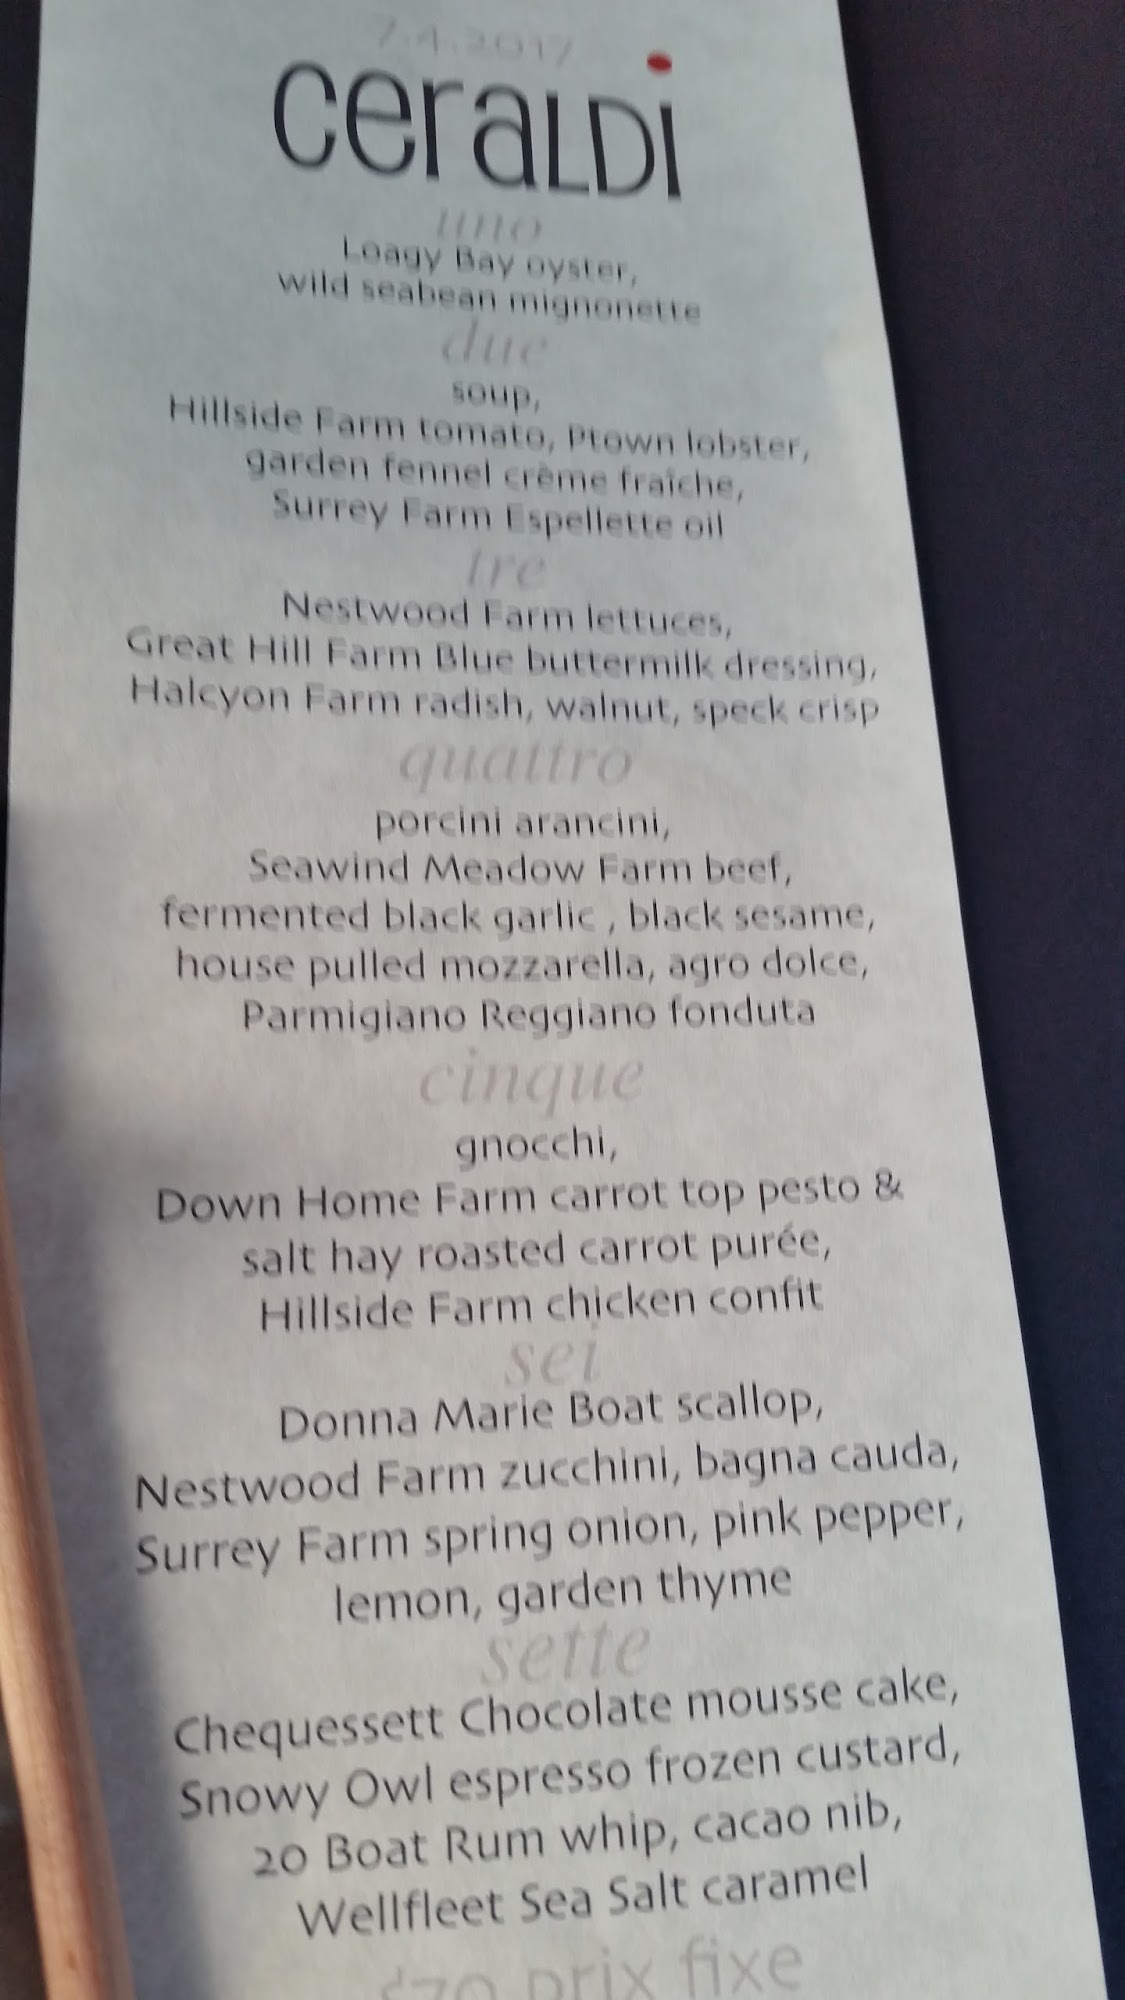 7.4.2017
ceraLDi
uno
Loagy Bay oyster,
wild seabean mignonette
due
soup,
Hillside Farm tomato, Ptown lobster,
garden fennel crème fraîche,
Surrey Farm Espellette oil
tre
Nestwood Farm lettuces,
Great Hill Farm Blue buttermilk dressing,
Halcyon Farm radish, walnut, speck crisp
quattro
porcini arancini,
Seawind Meadow Farm beef,
fermented black garlic , black sesame,
house pulled mozzarella, agro dolce,
Parmigiano Reggiano fonduta
cinque
gnocchi,
Down Home Farm carrot top pesto &
salt hay roasted carrot purée,
Hillside Farm chicken confit
sei
Donna Marie Boat scallop,
Nestwood Farm zucchini, bagna cauda,
Surrey Farm spring onion, pink pepper,
lemon, garden thyme
sette
Chequessett Chocolate mousse cake,
Snowy Owl espresso frozen custard,
20 Boat Rum whip, cacao nib,
Wellfleet Sea Salt caramel
$70 prix fixe